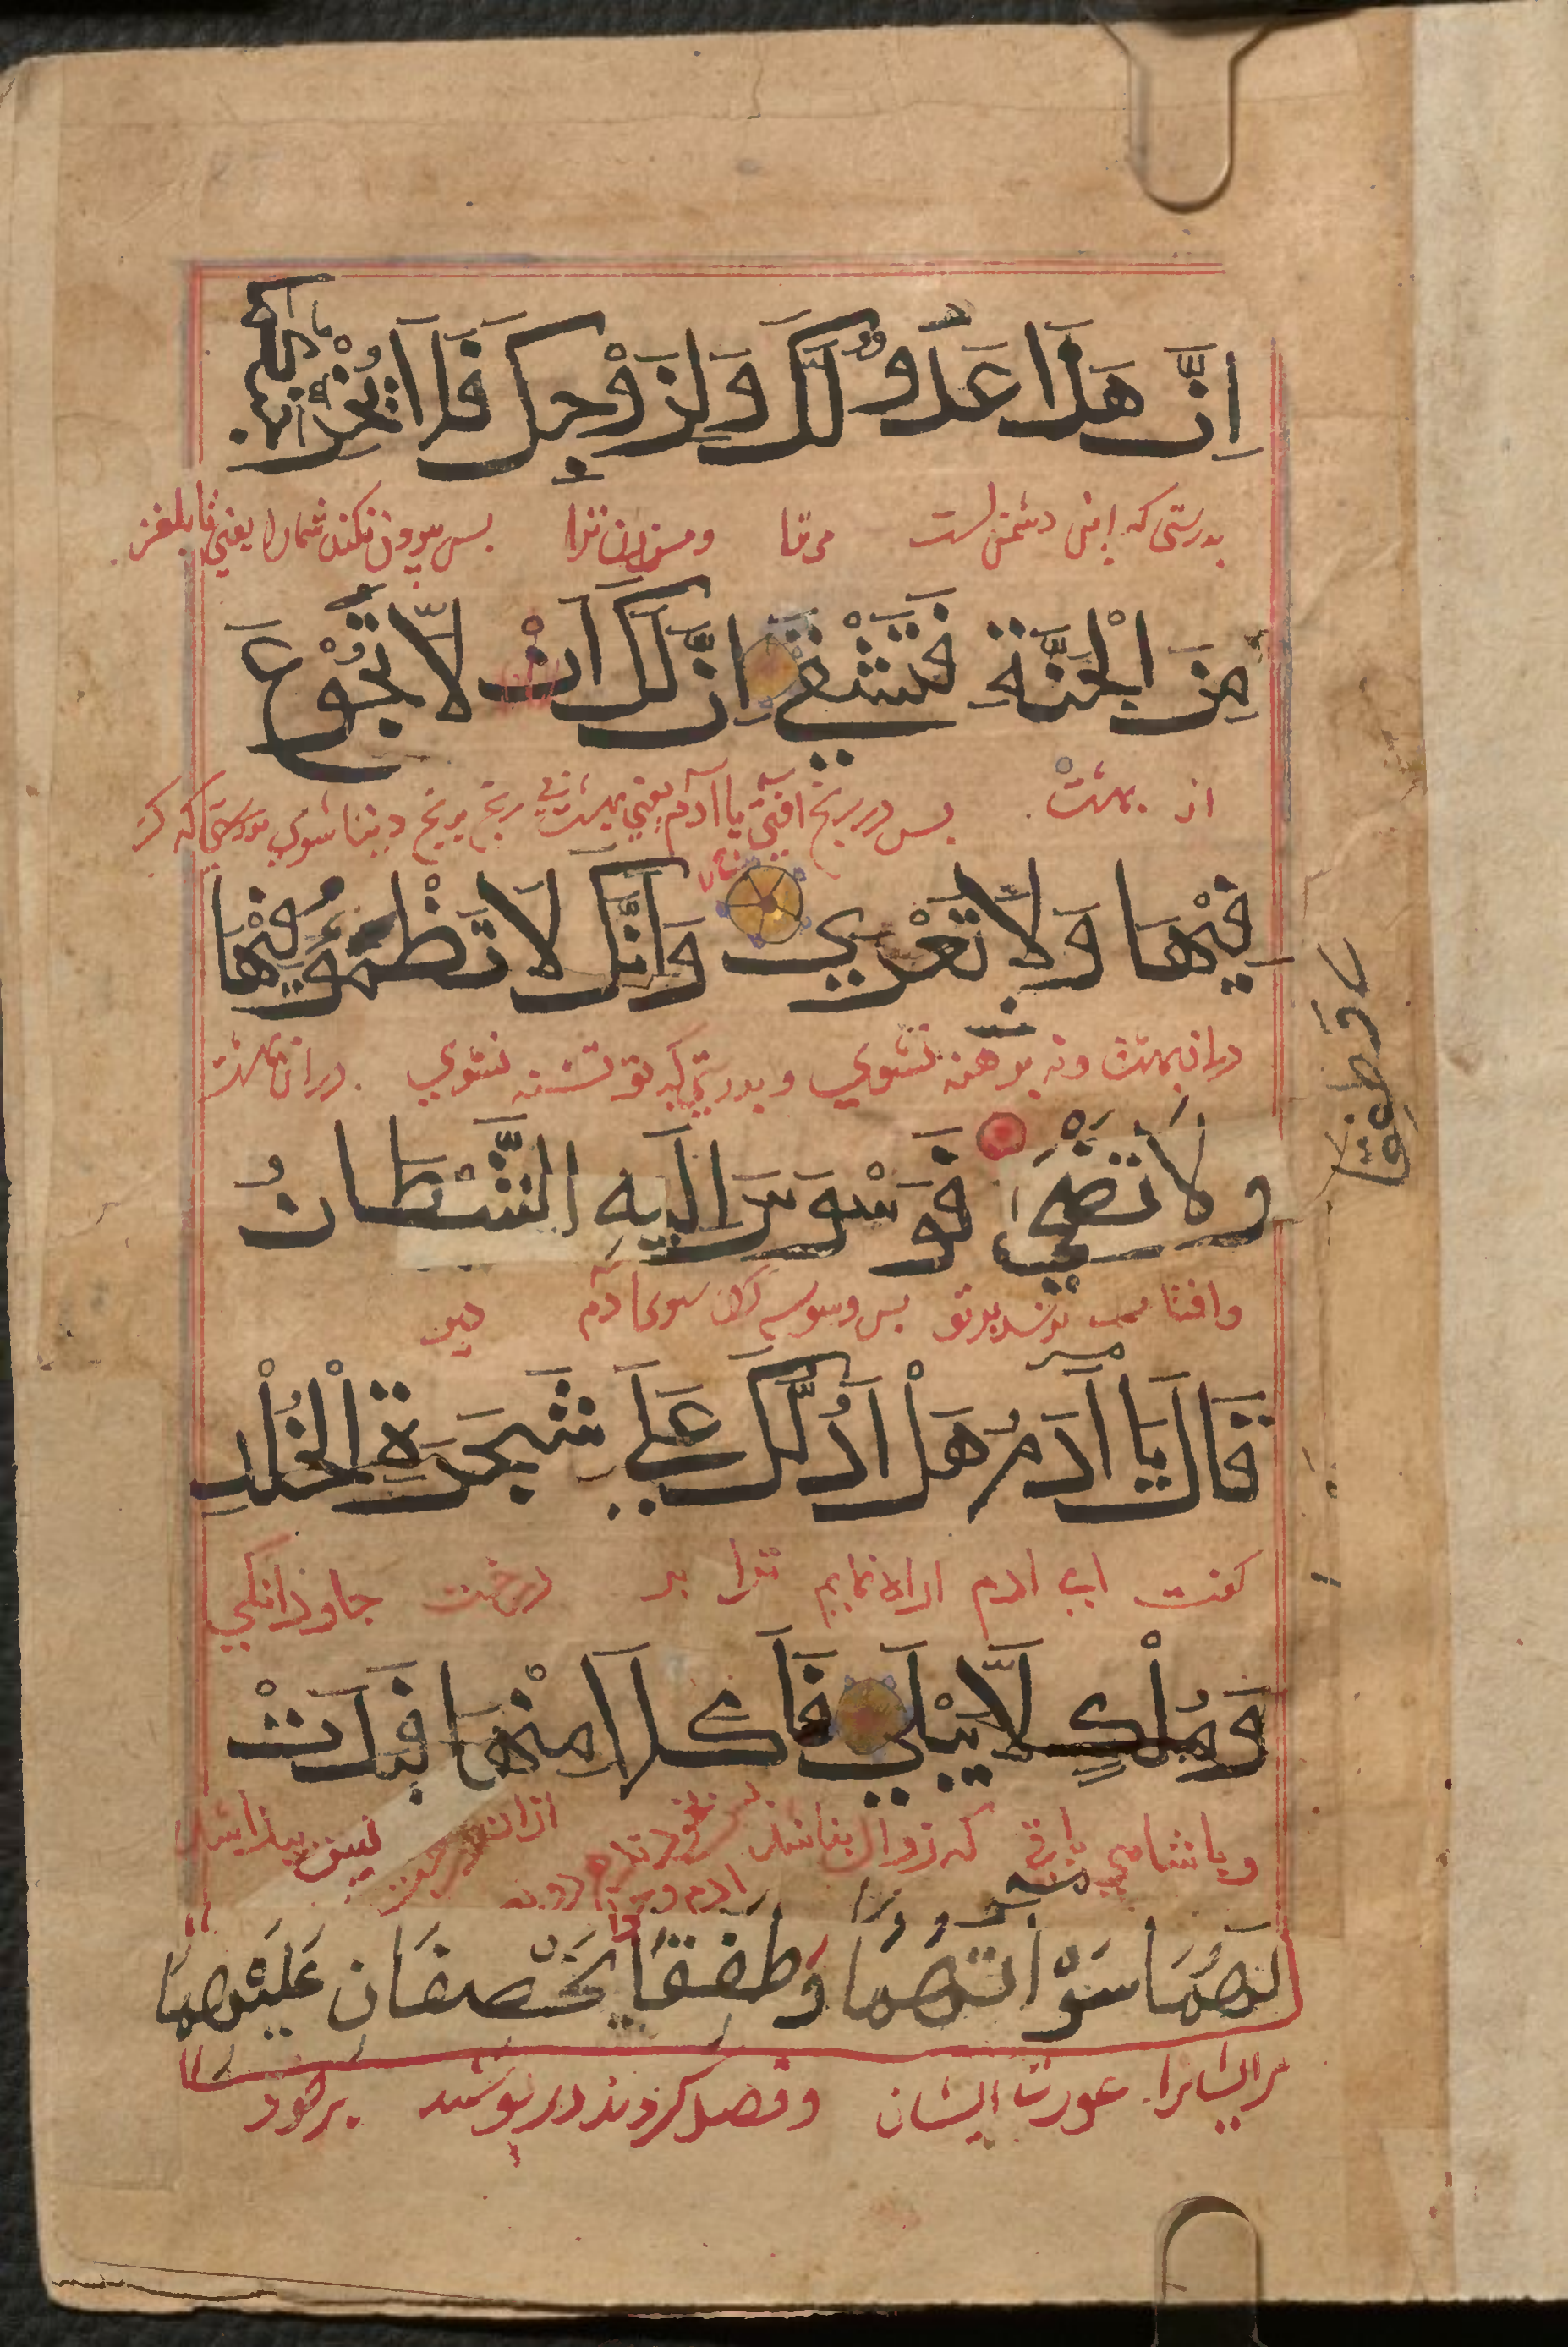 اِنَّ هٰذَا عَدُوٌّ لَّكَ وَلِزَوْجِكَ فَلَا يُخْرِجَنَّكُمَا
بدرستی که این دشمن است مر ترا و مر زن ترا بس بیرون نکند شمارا یعنی تا
مِنَ الْجَنَّةِ فَتَشْقٰي اِنَّ لَكَ اَنْ لَّا تَجُوْعَ
از بهشت بس در رنج افتی یا آدم یعنی رنج دنیا شوی بدرستی که
فِيْهَا وَلَا تَعْرٰي وَاَنَّكَ لَا تَظْمَؤُ فِيْهَا
دران بهشت ونه برهنه نشوي وبدرستي که تو تشنه نشوي دران بهشت
وَلَا تَضْحٰي فَوَسْوَسَ اِلَيْهِ الشَّيْطَانُ
وافتاب بر تو بس وسوسه کرد سوی ادم دیو
قَالَ يَا اٰدَمُ هَلْ اَدُلُّكَ عَلٰي شَجَرَةِ الْخُلْدِ
کفت اي ادم اراه نمایم ترا بر درخت جاوذانکي
وَمُلْكٍ لَّا يَبْلٰي فَاَكَلَا مِنْهَا فَبَدَتْ
وپاشاهي که زوال نباشد ازان درخت بس پیدا شد
ادم وحوا
لَهُمَا سَوْاٰتُهُمَا وَطَفِقَا يَخْصِفَانِ عَلَيْهِمَا
مرایشانرا عورت ایشان وقصد کردند در پوشید برخود
وَطَفِقَا